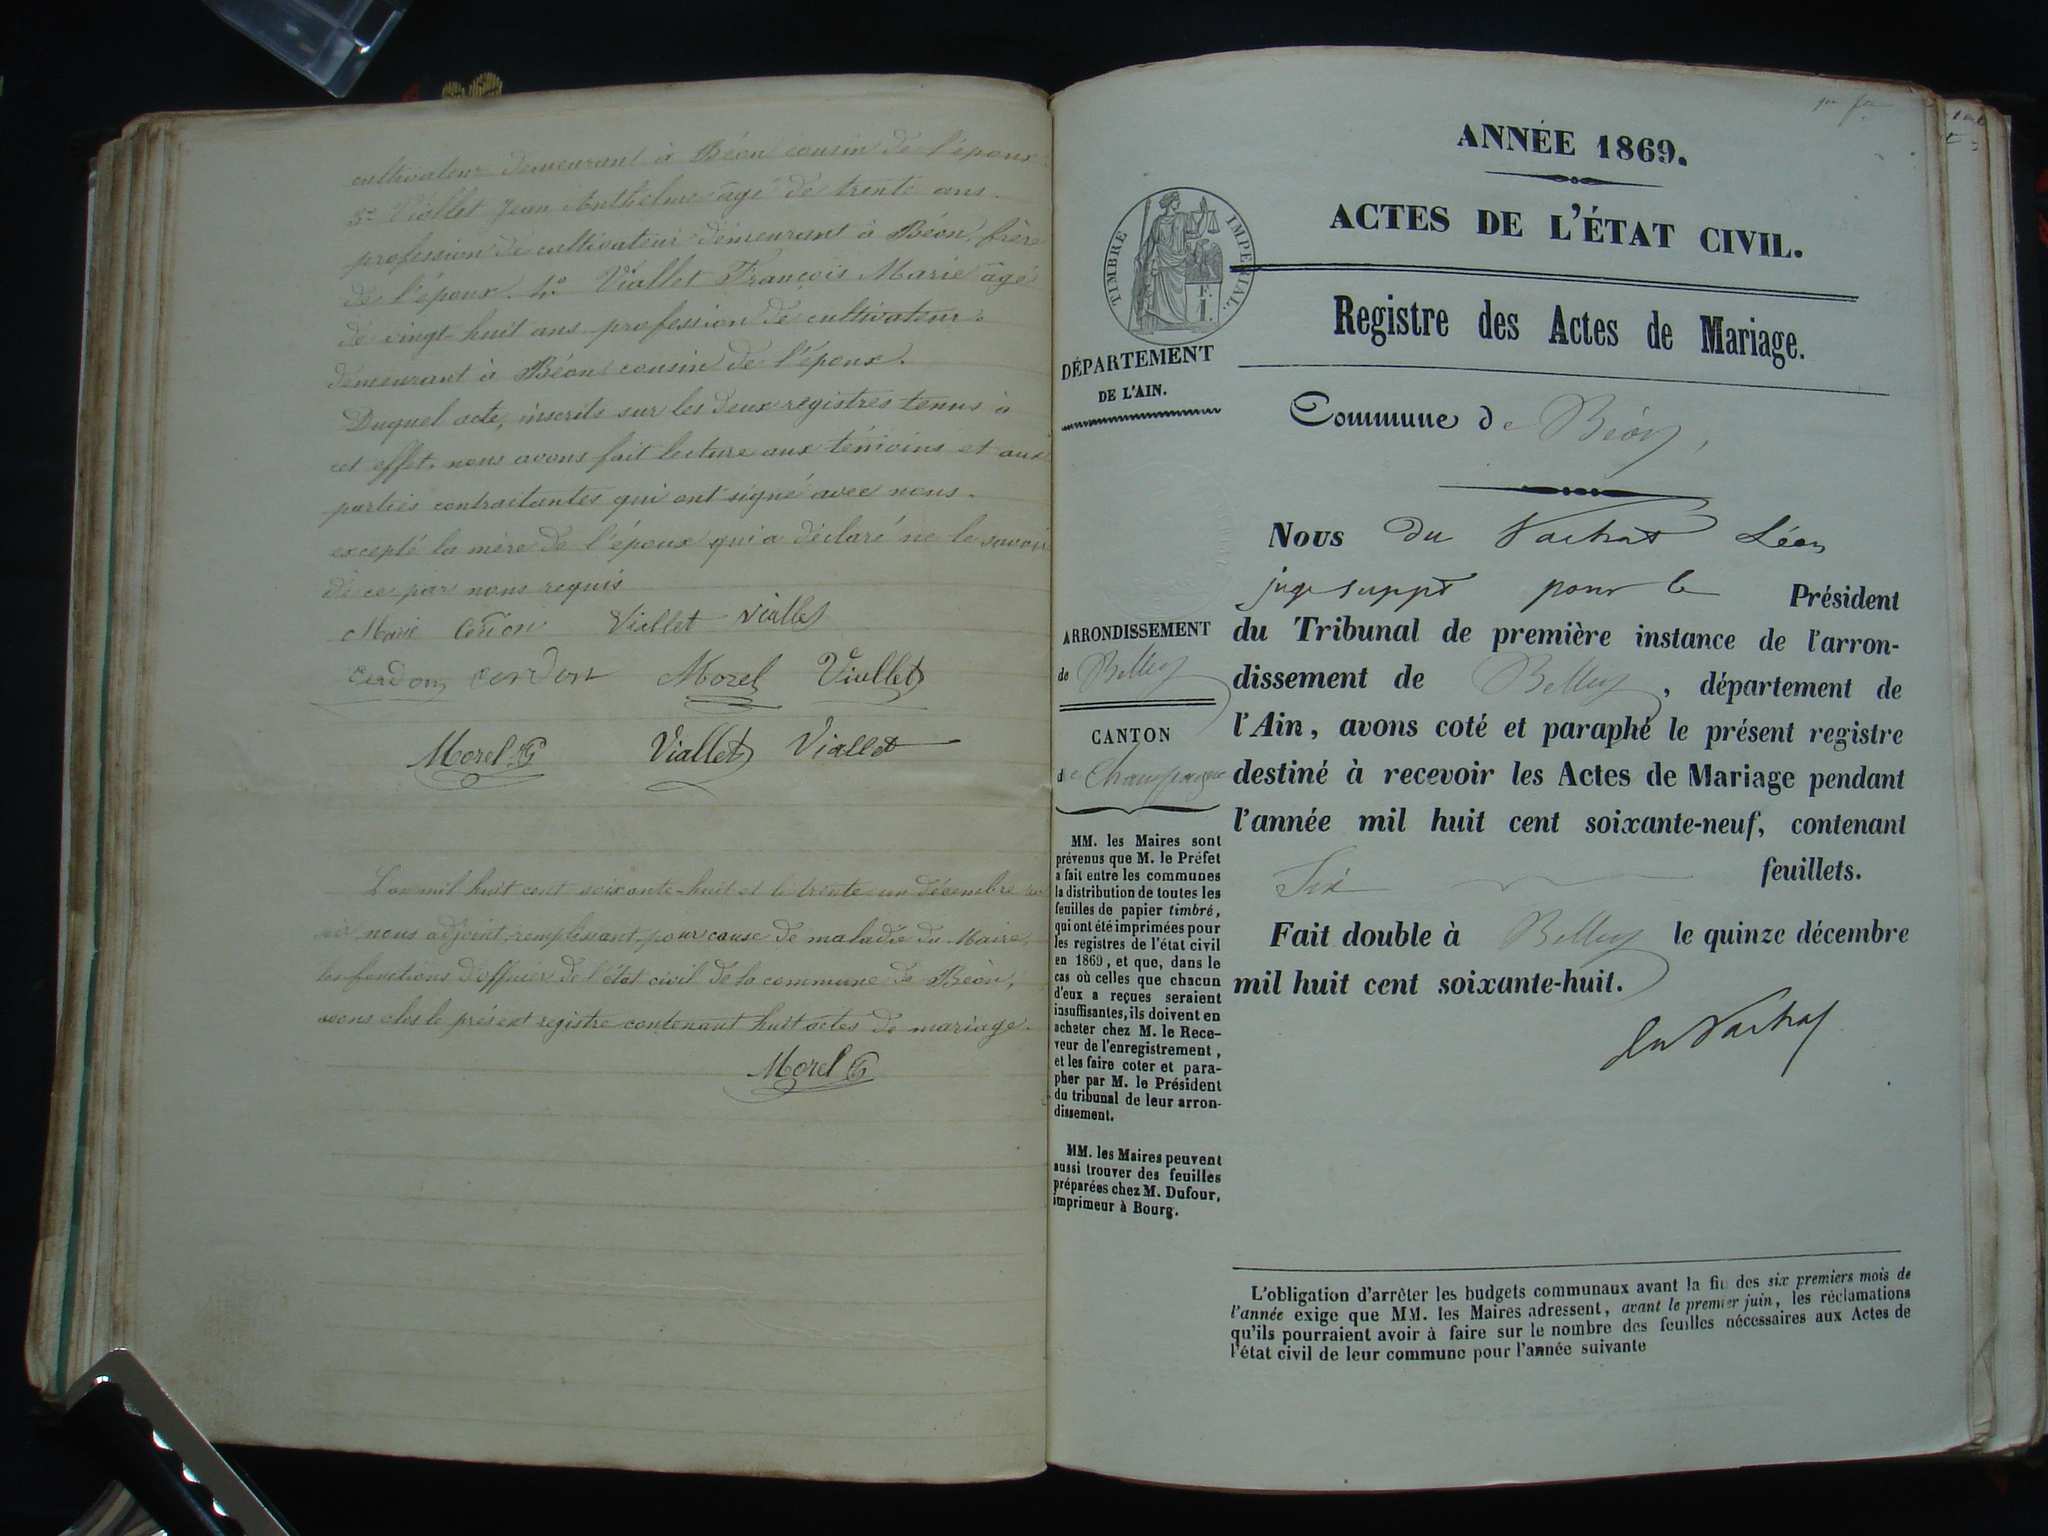 cultivateur demeurant à Béon cousin de l'époux
3º Viallet Jean Anthelme âgé de trente ans.
profession de cultivateur demeurant à Béon, frère
de l'époux. 4º Viallet François Marie âgé
de vingt-huit ans profession de cultivateur
demeurant à Béon cousin de l'époux.
Duquel acte, inscrits sur les deux registres tenus à
cet effet, nous avons fait lecture aux témoins et aux
parties contractantes qui ont signé avec nous.
excepté la mère de l'époux qui a déclaré ne le savoir
de ce par nous requis
Marie Viallet Viallet
cerdon cordon Morel Viallet
Morel Viallet Viallet
L'an mil huit cent soixante-huit et le trente un décembre
nous adjoint remplissant pour cause de maladie du Maire,
les fonctions d'officier de l'état civil de la commune de Béon,
avons clos le présent registre contenant huit actes de mariage.
Morel
ANNÉE 1869.
ACTES DE L'ÉTAT CIVIL.
TIMBRE IMPERIAL.
F.
1.
Registre des Actes de Mariage.
DÉPARTEMENT
DE L'AIN.
Commune de Béon,
ARRONDISSEMENT
de Belley
CANTON
de Champagne
MM. les Maires sont
prévenus que M. le Préfet
a fait entre les communes
la distribution de toutes les
feuilles de papier timbré,
qui ont été imprimées pour
les registres de l'état civil
en 1869, et que, dans le
cas où celles que chacun
d'eux a reçues seraient
insuffisantes, ils doivent en
acheter chez M. le Rece-
veur de l'enregistrement,
et les faire coter et para-
pher par M. le Président
du tribunal de leur arron-
dissement.
MM. les Maires peuvent
aussi trouver des feuilles
préparées chez M. Dufour,
imprimeur à Bourg.
Nous du Vachat Léon
juge suppt pour le Président
du Tribunal de première instance de l'arron-
dissement de Belley, département de
l'Ain, avons coté et paraphé le présent registre
destiné à recevoir les Actes de Mariage pendant
l'année mil huit cent soixante-neuf, contenant
Six feuillets.
Fait double à Belley le quinze décembre
mil huit cent soixante-huit.
du Vachat
L'obligation d'arrêter les budgets communaux avant la fin des six premiers mois de
l'année exige que MM. les Maires adressent, avant le premier juin, les réclamations
qu'ils pourraient avoir à faire sur le nombre des feuilles nécessaires aux Actes de
l'état civil de leur commune pour l'année suivante